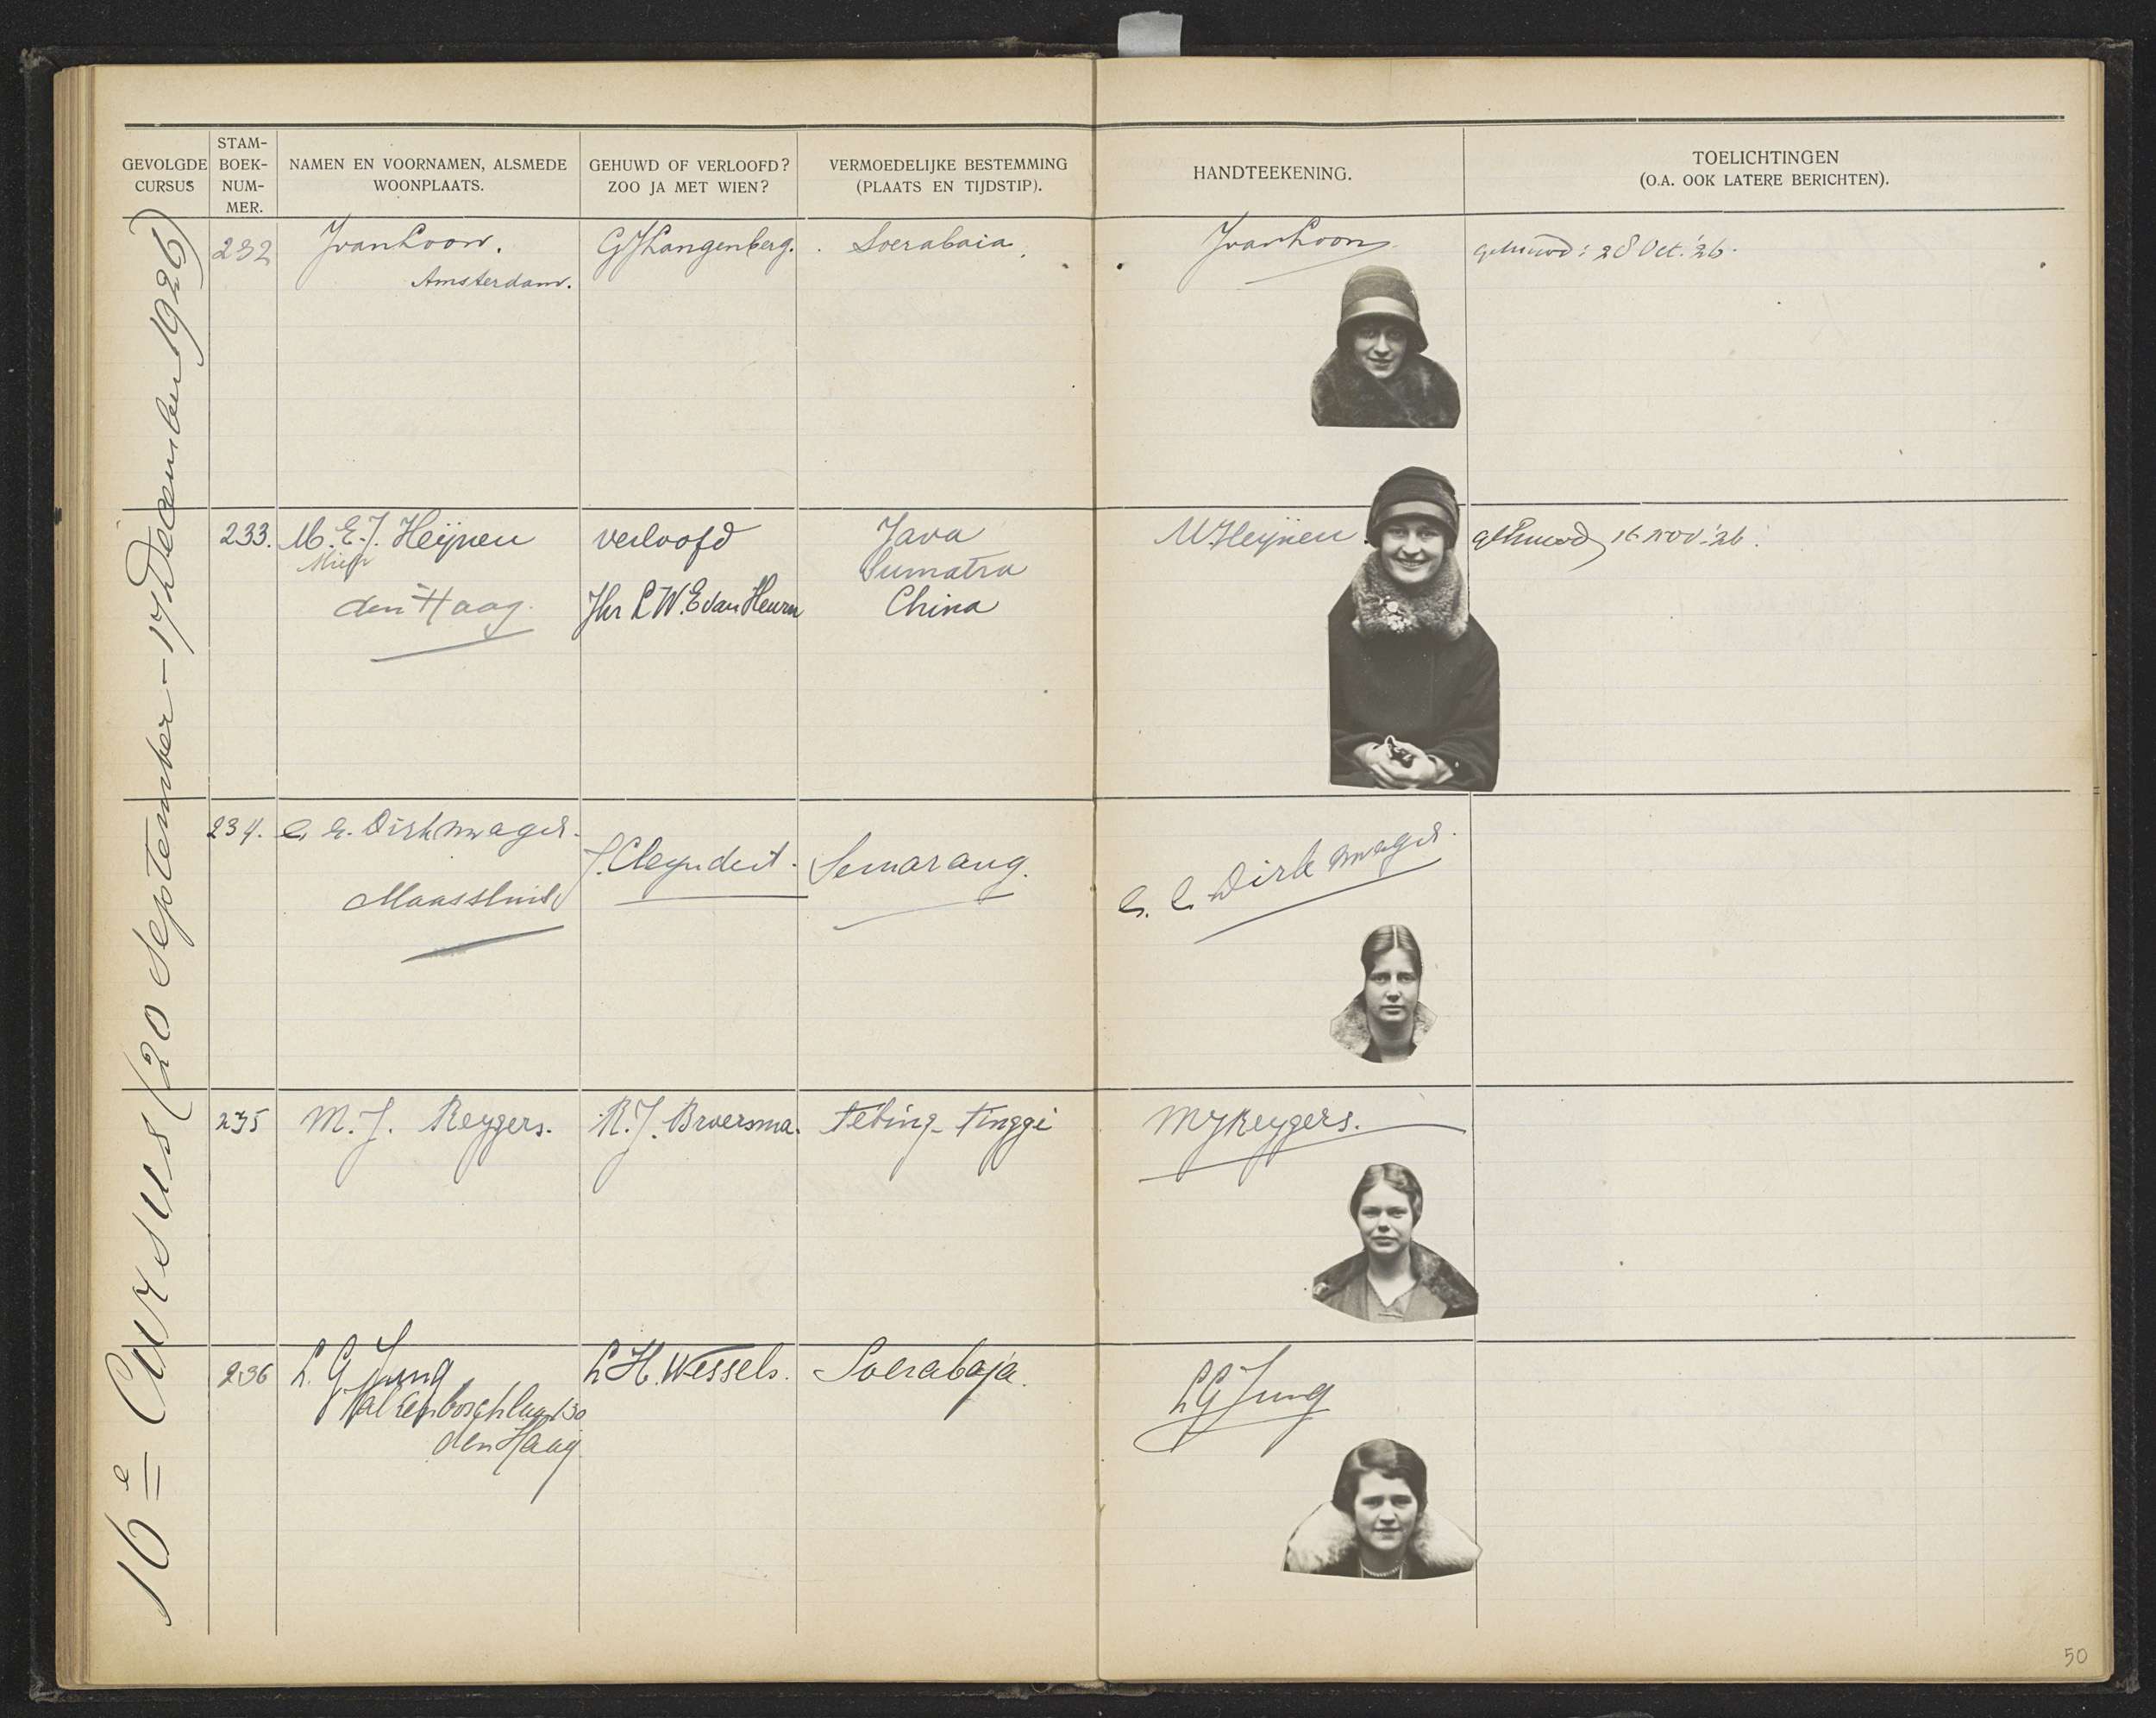 GEVOLGDE
CURSUS
STAM-
BOEK-
NUM-
MER.
NAMEN EN VOORNAMEN, ALSMEDE
WOONPLAATS.
GEHUWD OF VERLOOFD?
ZOO JA MET WIEN?
VERMOEDELIJKE BESTEMMING
(PLAATS EN TIJDSTIP).
HANDTEEKENING.
TOELICHTINGEN
(O.A. OOK LATERE BERICHTEN).
16e Cursus (20 September – 17 December 1926)
232
J van Loon.
Amsterdam.
G J Langenberg.
Soerabaia.
J van Loon
gehuwd: 28 Oct. '26.
233.
M. E. J. Heijnen
Miep
den Haag.
verloofd
Jhr L W. E van Heurn
Java
Sumatra
China
M Heijnen
gehuwd 16 nov. '26.
234.
C. E. Dirkzwager.
Maassluis
J. Cleyndert.
Semarang.
C. E. Dirkzwager.
235
M. J. Reygers.
R. J. Broersma.
Tebing-Tinggi
M J Reygers.
236
L. G Jung
Valkenboschlaan 130
den Haag
L H. Wessels.
Soerabaja.
L G Jung
50